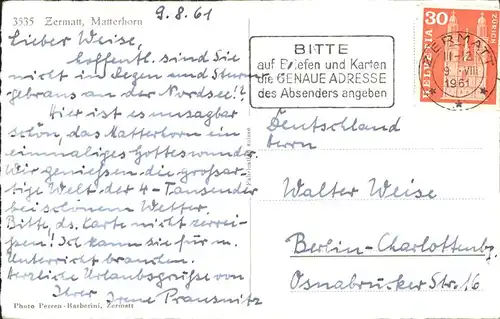 3535 Zermatt, Matterhorn
9.8.61
Lieber Weise,
hoffentl. sind Sie
nicht in Regen und Sturm
gebraus an der Nordsee!?
Hier ist es unsagbar
schön, das Matterhorn ein
einmaliges Gotteswunder.
Wir genießen die großar-
tige Welt der 4-Tausender
bei schönem Wetter.
Bitte, ds. Karte nicht zerrei-
ßen! Ich kann sie für m.
Unterricht brauchen.
Herzliche Urlaubsgrüße von
Ihrer Irene Prausnitz
Photo Perren-Barberini, Zermatt
BITTE
auf Briefen und Karten
die GENAUE ADRESSE
des Absenders angeben
ZERMATT
11-12
9 VIII
1961
30
HELVETIA
ZÜRICH
Deutschland
Herrn
Walter Weise
Berlin-Charlottenbg.
Osnabrücker Str. 16